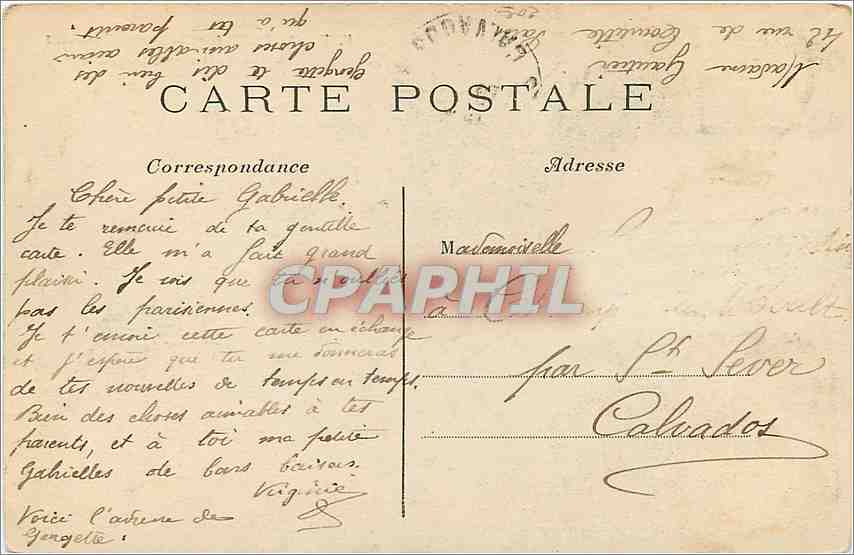 Madame Gautier
42 rue de
Georgette te dit bien des
choses aimables ainsi
qu'à tes parents.
CARTE POSTALE
Correspondance
Chère petite Gabrielle.
Je te remercie de ta gentille
carte. Elle m'a fait grand
plaisir. Je vois que tu n'oublies
pas les parisiennes.
Je t'envoie cette carte en échange
et j'espère que tu me donneras
de tes nouvelles de temps en temps.
Bien des choses aimables à tes
parents, et à toi ma petite
Gabrielles de bons baisers.
Virginie
Voici l'adresse de
Georgette:
Adresse
Mademoiselle
à
par St Sever
Calvados
CPAPHIL